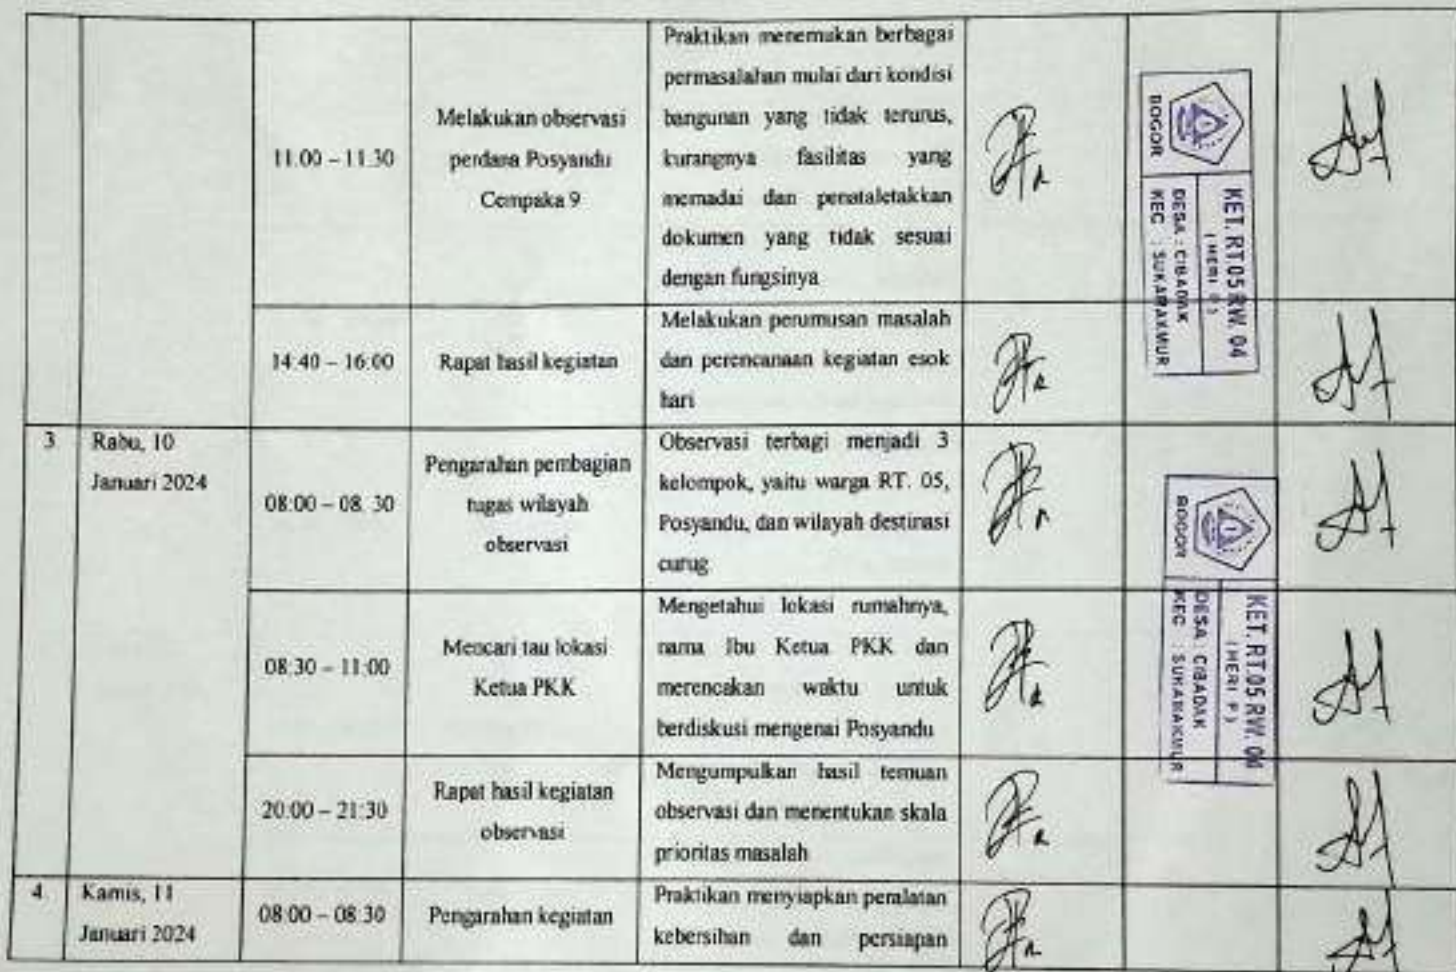 11.00 – 11.30
Melakukan observasi
perdana Posyandu
Cempaka 9
Praktikan menemukan berbagai
permasalahan mulai dari kondisi
bangunan yang tidak terurus,
kurangnya fasilitas yang
memadai dan penataletakkan
dokumen yang tidak sesuai
dengan fungsinya
BOGOR
KET. RT.05 RW. 04
DESA : CIBADAK
KEC : SUKAMAKMUR
14:40 – 16:00
Rapat hasil kegiatan
Melakukan perumusan masalah
dan perencanaan kegiatan esok
hari
3.
Rabu, 10
Januari 2024
08:00 – 08. 30
Pengarahan pembagian
tugas wilayah
observasi
Observasi terbagi menjadi 3
kelompok, yaitu warga RT. 05,
Posyandu, dan wilayah destinasi
curug
BOGOR
KET. RT.05 RW. 04
(HERI P)
DESA : CIBADAK
KEC : SUKAMAKMUR
08:30 – 11:00
Mencari tau lokasi
Ketua PKK
Mengetahui lokasi rumahnya,
nama Ibu Ketua PKK dan
merencakan waktu untuk
berdiskusi mengenai Posyandu
20:00 – 21:30
Rapat hasil kegiatan
observasi
Mengumpulkan hasil temuan
observasi dan menentukan skala
prioritas masalah
4.
Kamis, 11
Januari 2024
08:00 – 08:30
Pengarahan kegiatan
Praktikan menyiapkan peralatan
kebersihan dan persiapan